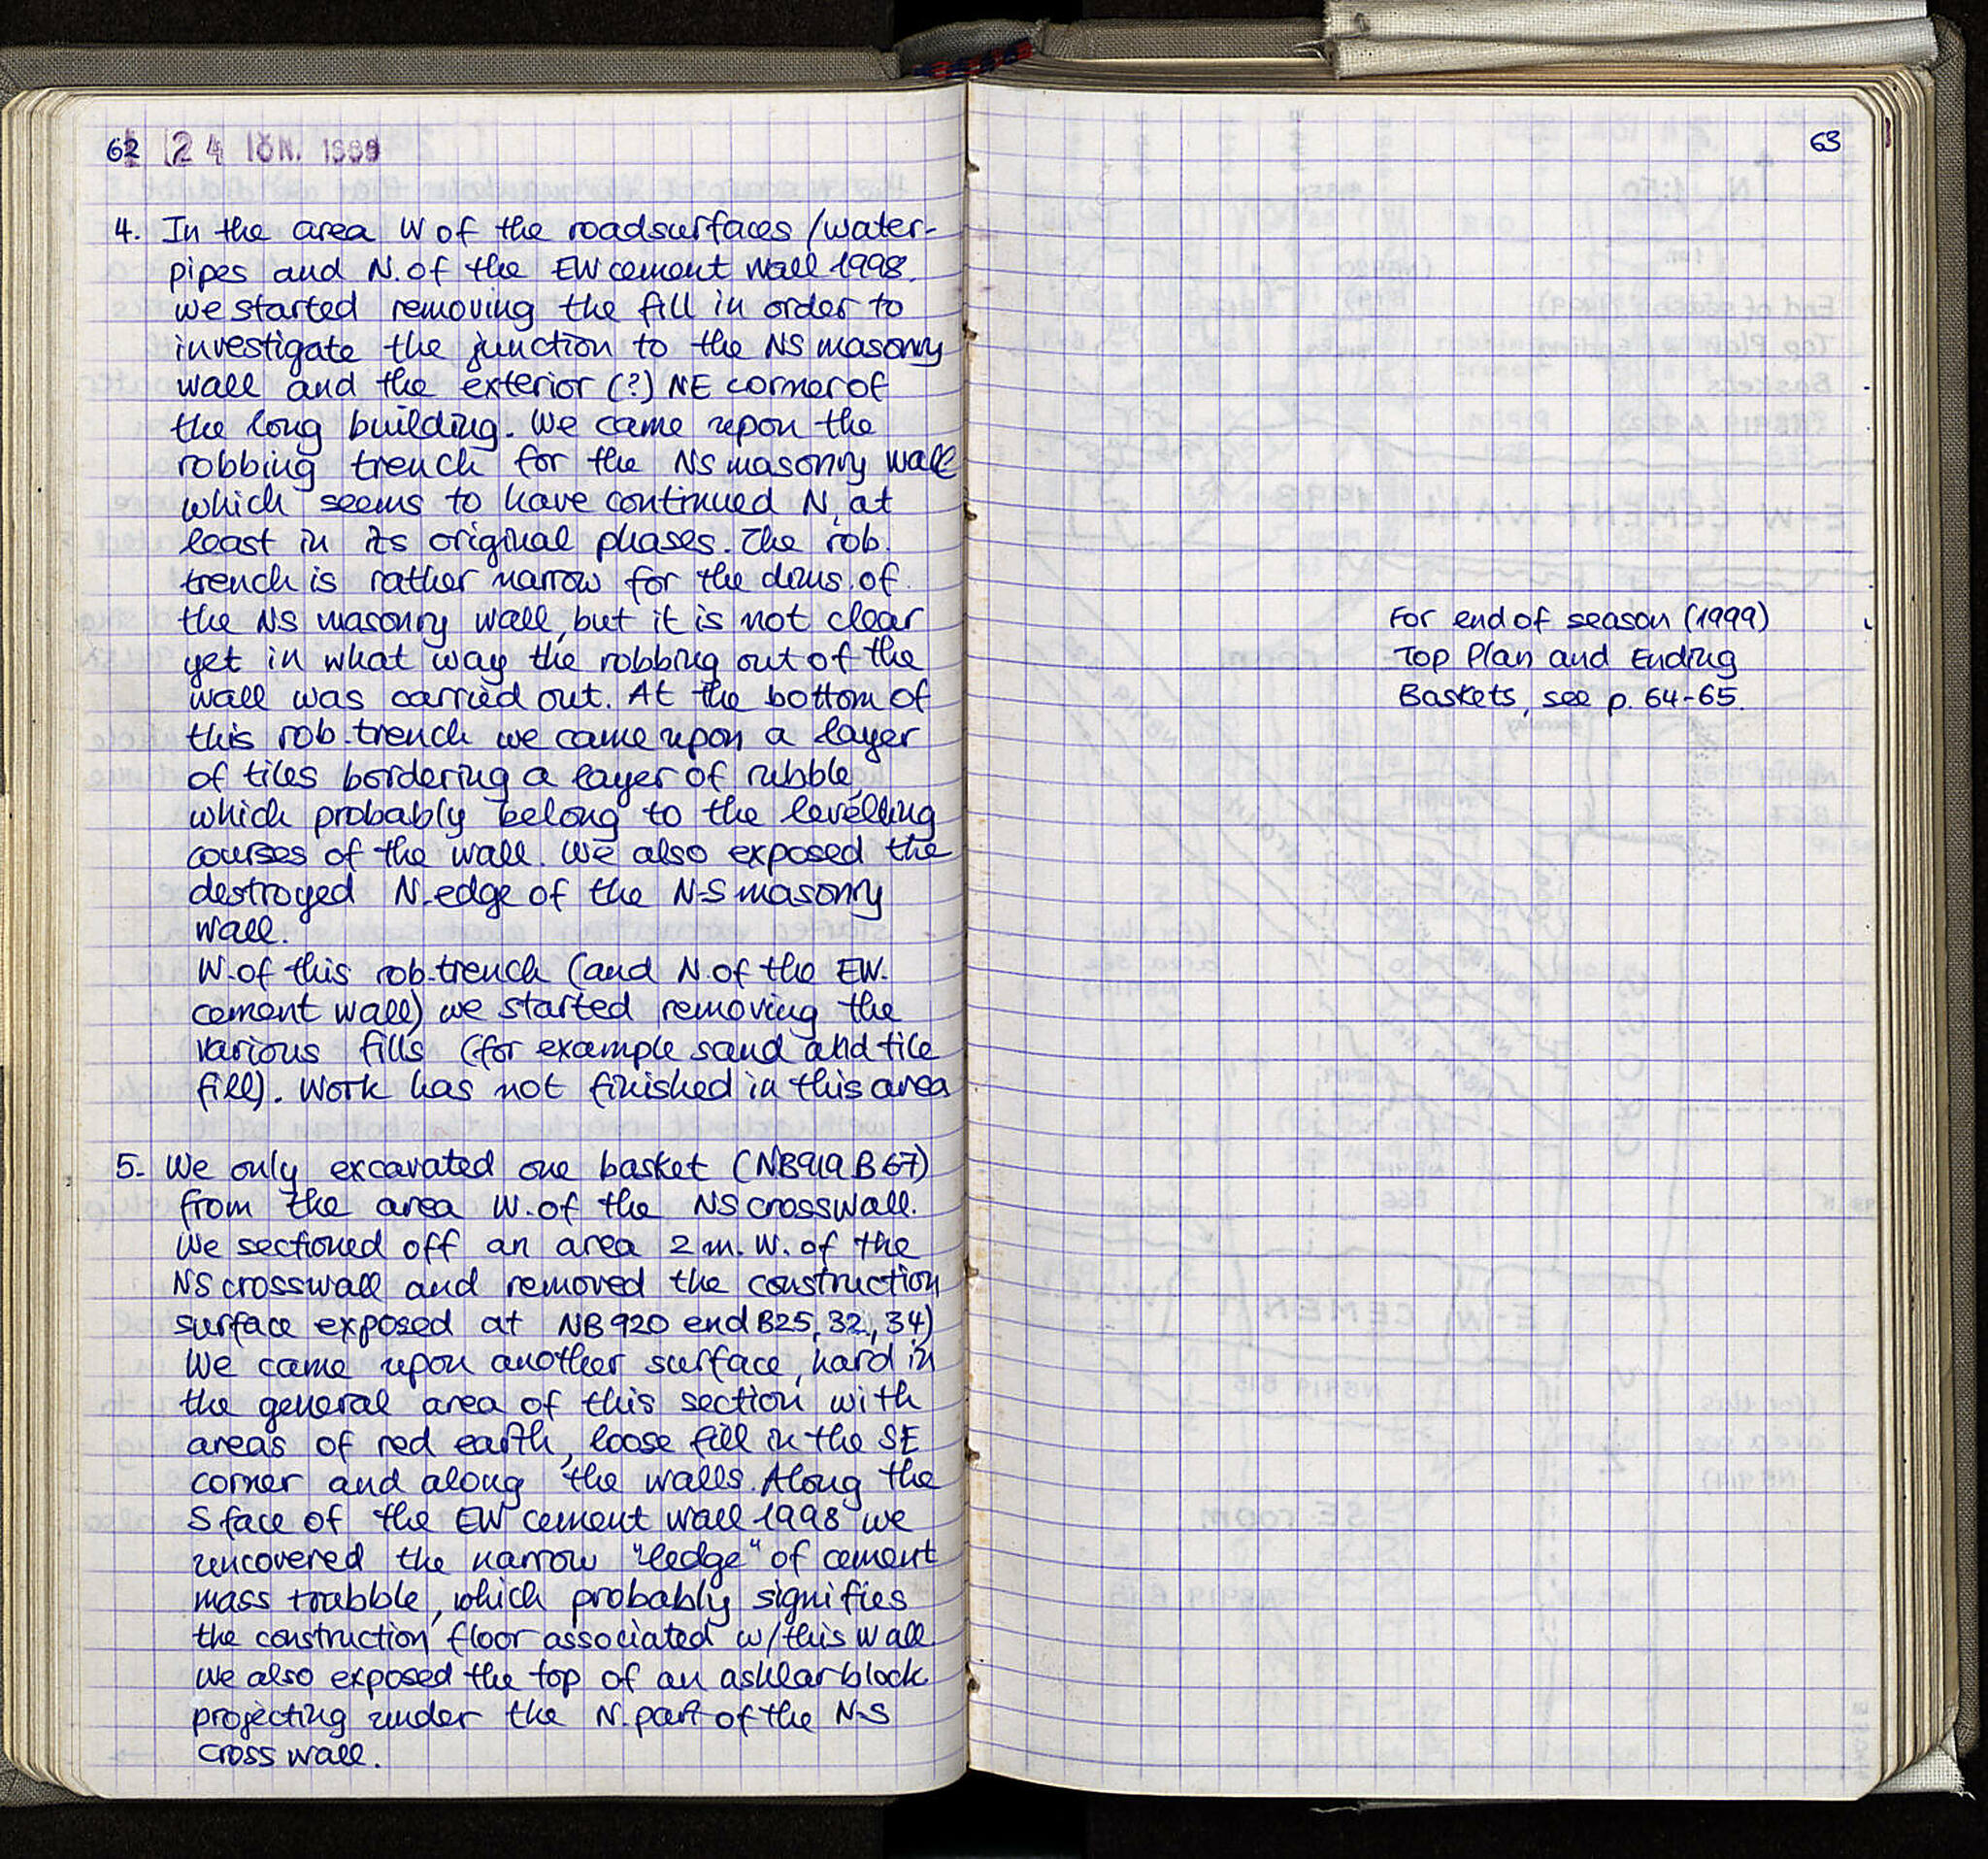 62 24 ΙΟΝ. 1999
4. In the area W of the roadsurfaces/water-
pipes and N. of the EW cement wall 1998.
we started removing the fill in order to
investigate the junction to the NS masonry
wall and the exterior (?) NE corner of
the long building. We came upon the
robbing trench for the NS masonry wall
which seems to have continued N, at
least in its original phases. The rob.
trench is rather narrow for the dims. of
the NS masonry wall, but it is not clear
yet in what way the robbing out of the
wall was carried out. At the bottom of
this rob. trench we came upon a layer
of tiles bordering a layer of rubble,
which probably belong to the levelling
courses of the wall. We also exposed the
destroyed N. edge of the N-S masonry
wall.
W. of this rob. trench (and N. of the EW.
cement wall) we started removing the
various fills (for example sand and tile
fill). Work has not finished in this area
5. We only excavated one basket (NB919 B67)
from the area W. of the NS crosswall.
We sectioned off an area 2 m. W. of the
NS crosswall and removed the construction
surface exposed at NB920 end B25, 32, 34)
We came upon another surface, hard in
the general area of this section with
areas of red earth, loose fill in the SE
corner and along the walls. Along the
S face of the EW cement wall 1998 we
uncovered the narrow "ledge" of cement
mass + rubble, which probably signifies
the construction floor associated w/this wall
We also exposed the top of an ashlar block
projecting under the N. part of the N-S
cross wall.
63
For end of season (1999)
Top Plan and Ending
Baskets, see p. 64-65.